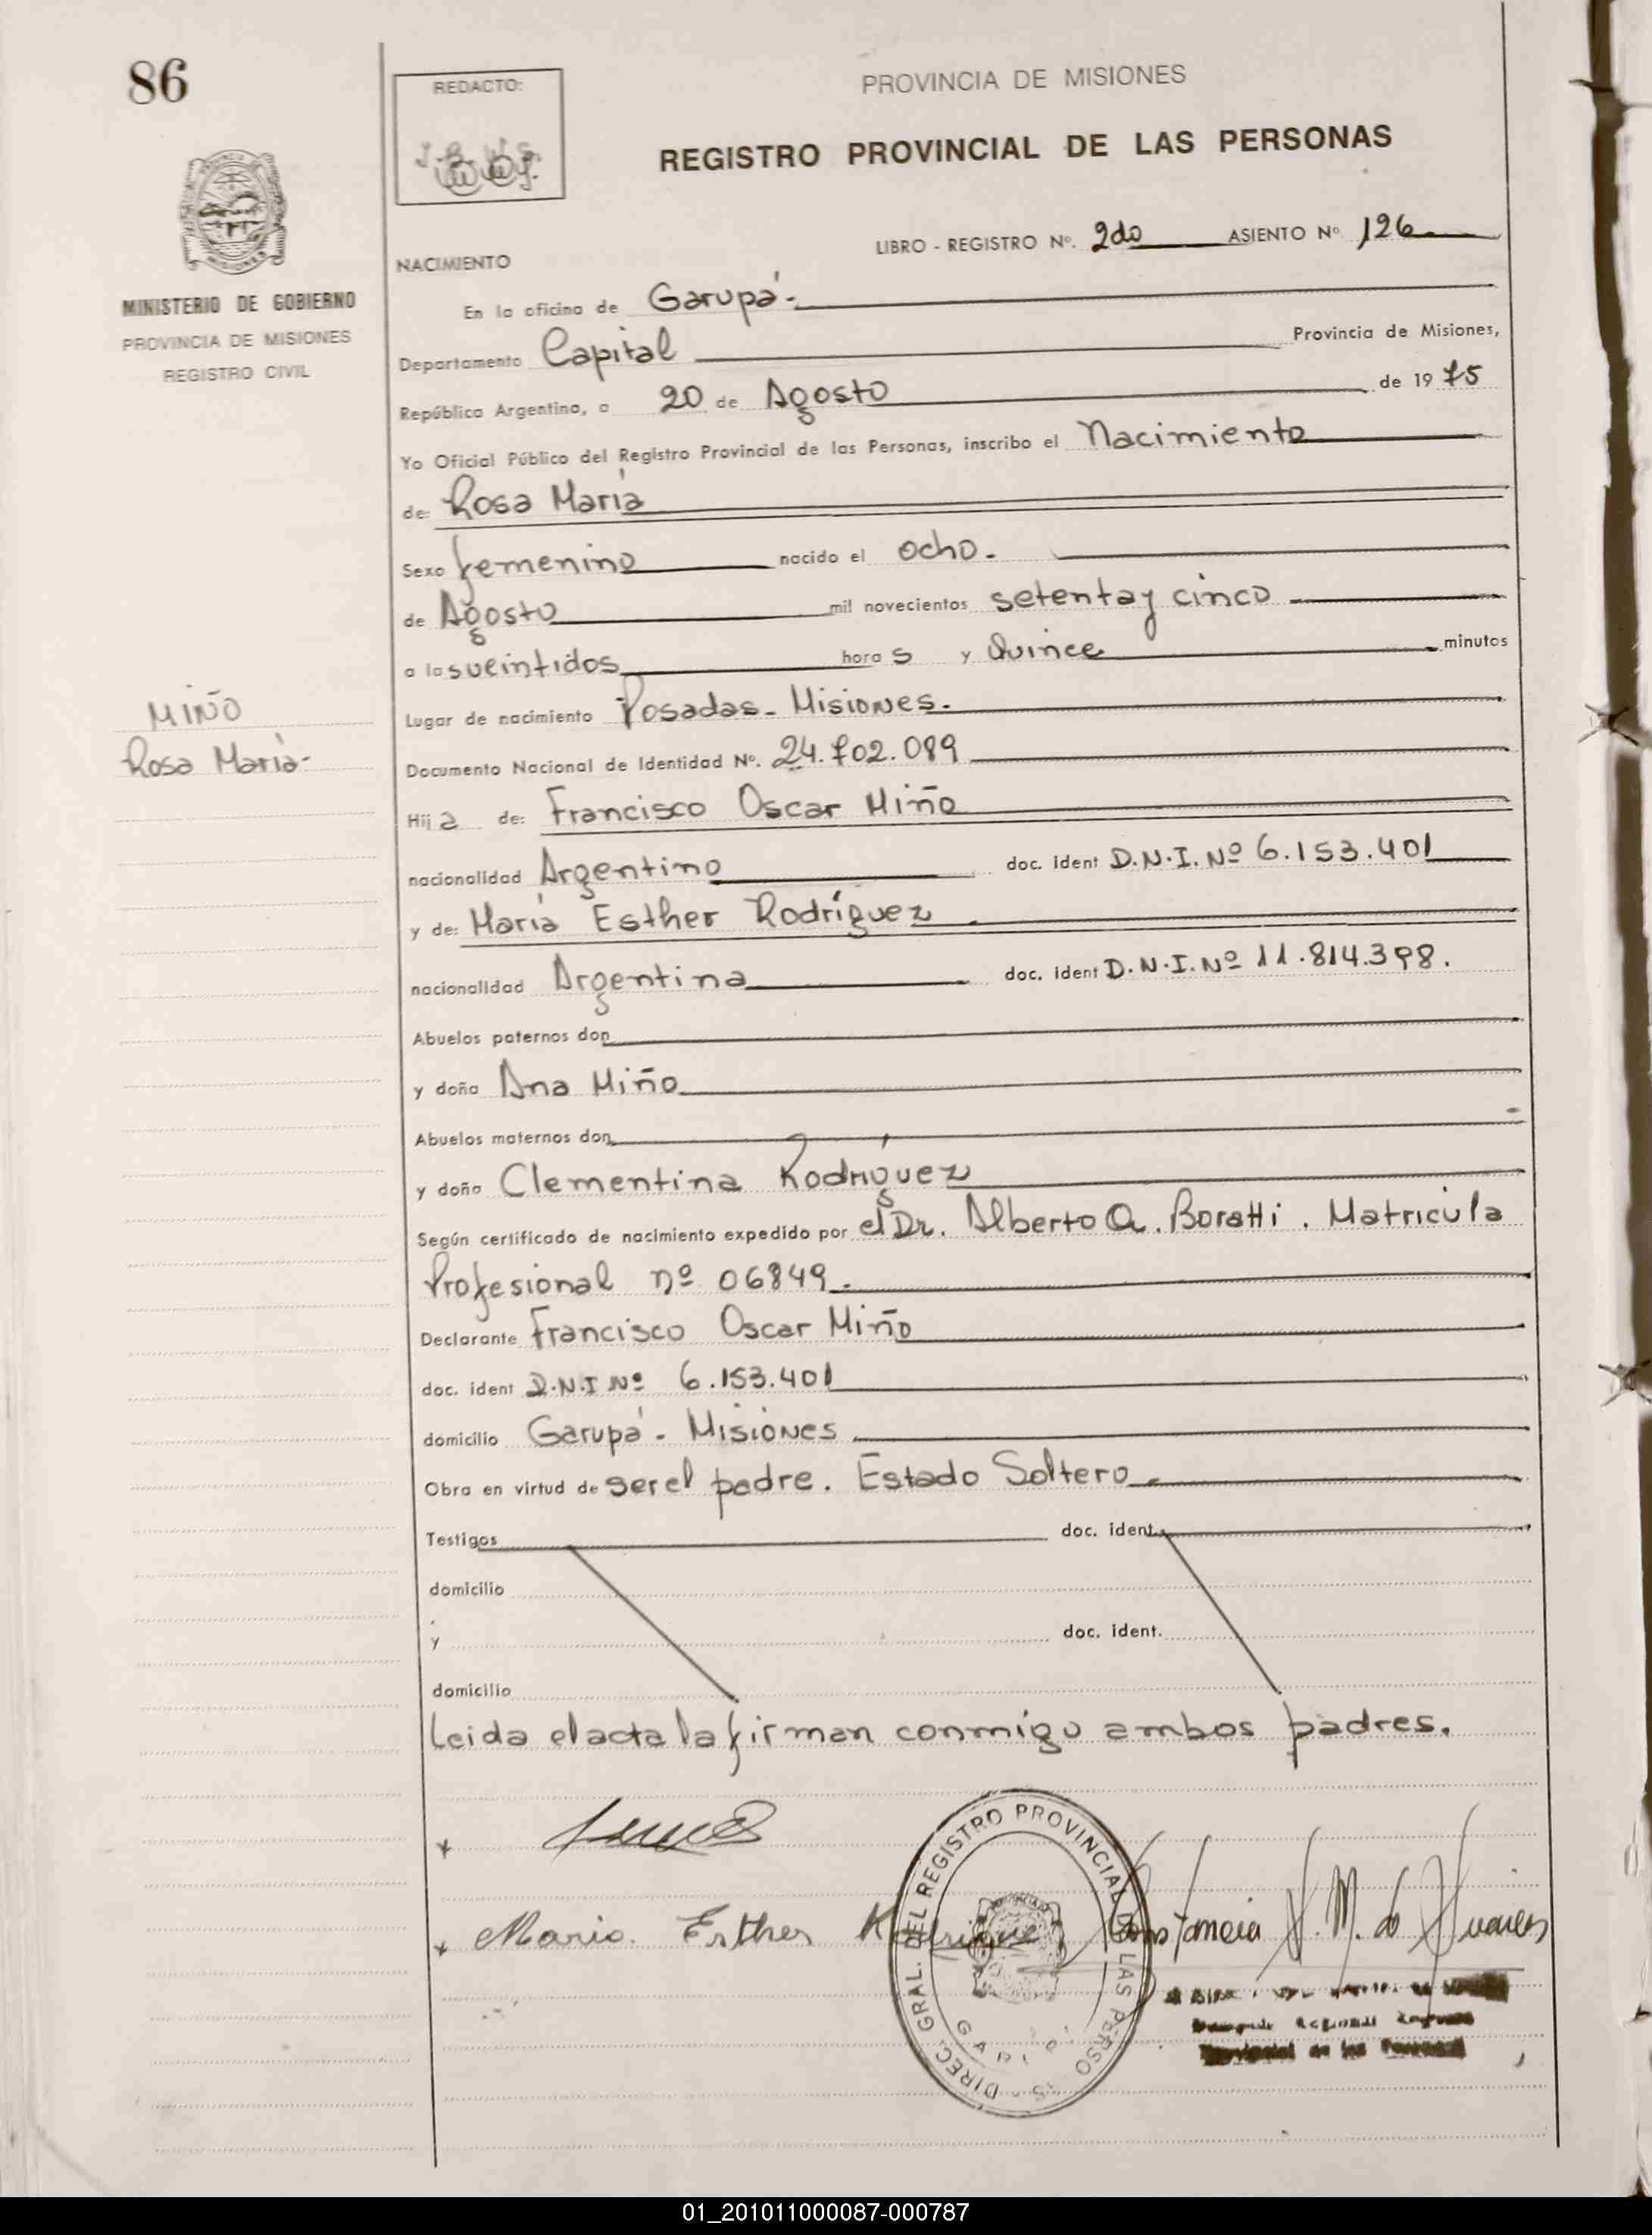 86
REDACTO:
PROVINCIA DE MISIONES
REGISTRO PROVINCIAL DE LAS PERSONAS
LIBRO - REGISTRO Nº. 2do ASIENTO Nº 126
NACIMIENTO
MINISTERIO DE GOBIERNO
PROVINCIA DE MISIONES
REGISTRO CIVIL
En la oficina de Garupá.-
Departamento Capital Provincia de Misiones,
República Argentina, a 20 de Agosto de 1975
Yo Oficial Público del Registro Provincial de las Personas, inscribo el Nacimiento
de: Rosa María
Sexo femenino nacido el ocho.
de Agosto mil novecientos setenta y cinco
a las veintidos horas y Quince minutos
Lugar de nacimiento Posadas - Misiones.
MIÑO
Rosa María-
Documento Nacional de Identidad Nº. 24.702.089
Hija de: Francisco Oscar Miño
nacionalidad Argentino doc. ident D.N.I. Nº 6.153.401
y de: María Esther Rodríguez
nacionalidad Argentina doc. ident D.N.I. Nº 11.814.398.
Abuelos paternos don
y doña Ana Miño
Abuelos maternos don
y doña Clementina Rodríguez
Según certificado de nacimiento expedido por el Dr. Alberto A. Boratti. Matricula
Profesional nº 06849.
Declarante Francisco Oscar Miño
doc. ident D.N.I Nº 6.153.401
domicilio Garupá - Misiones
Obra en virtud de ser el padre. Estado Soltero
Testigos doc. ident.
domicilio
y doc. ident.
domicilio
Leida el acta la firman conmigo ambos padres.
María Esther Rodrigue
DIREC. GRAL. DEL REGISTRO PROVINCIAL DE LAS PERSO S
01_201011000087-000787